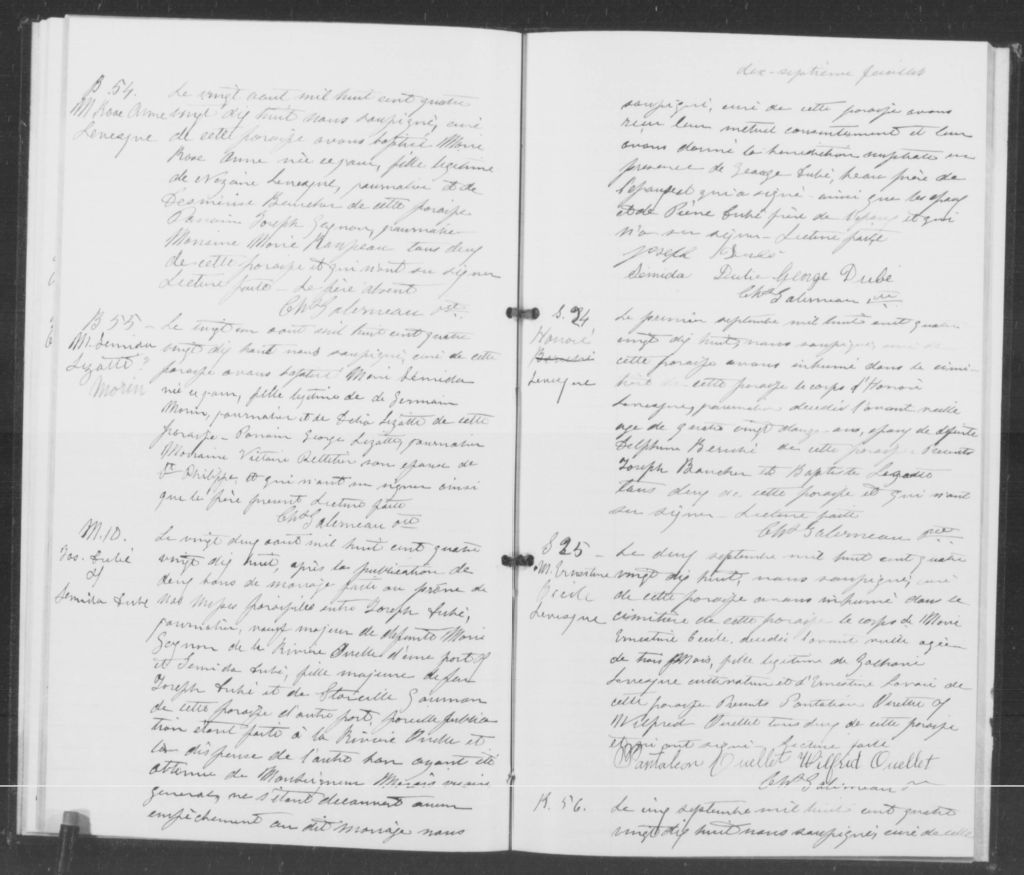 B 54.
M Rose Anne
Levesque
Le vingt aout mil huit cent quatre
vingt dix huit nous soupigné, curé
de cette paroisse avons baptisé Marie
Rose Anne née ce jour, fille legitime
de Nazaire Levesque, journalier et de
Desmerise Boucher de cette paroisse
Parrain Joseph Gagnon, journalier
Marraine Marie Raupeau tous deux
de cette paroisse et qui n'ont su signer
Lecture faite - Le père absent
Chs Galerneau ptre
B 55 -
M. Lemida
Lizotte ?
Morin
Le vingt un aout mil huit cent quatre
vingt dix huit nous soupigné, curé de cette
paroisse avons baptisé Marie Lémida
née ce jour, fille legitime de de Germain
Morin, journalier et de Delia Lizotte de cette
paroisse - Parrain George Lizotte, journalier
Marraine Victoire Pelletier son epouse de
St Philippe, et qui n'ont su signer ainsi
que le père present Lecture faite
Chs Galerneau ptre
M. 10.
Jos. Dubé
&
Lemida Dubé
Le vingt deux aout mil huit cent quatre
vingt dix huit, après la publication de
deux bans de mariage faite au prône de
nos messes paroissiales entre Joseph Dubé,
journalier, veuf majeur de défunte Marie
Gagnon de la Rivière Ouelle d'une part &
et Lemida Dubé, fille majeure de feu
Joseph Dubé et de
de cette paroisse d'autre part, pareille publica
tion etant faite à la Rivière Ouelle et
la dispense de l'autre ban ayant été
obtenue de Monseigneur Marois vicaire
general, ne s'étant decouvert aucun
empêchement au dit mariage nous
dix-septième feuillet
soupigné, curé de cette paroisse avons
reçu leur mutuel consentement et leur
avons donné la benediction nuptiale en
presence de George Dubé, beau père de
l'epouse et qui a signé ainsi que les epoux
et de Pierre Dubé frère de l'epoux et qui
n'a su signer - Lecture faite
Joseph Dubé
Lemida Dubé George Dubé
Chs Galerneau ptre
S. 24
Honoré
Levesque
Le premier septembre mil huit cent quatre
vingt dix huit, nous soupigné, curé de
cette paroisse avons inhumé dans le cimi
tière de cette paroisse le corps d'Honoré
Levesque, journalier decedé l'avant veille
age de quatre vingt douze ans, epoux de défunte
Delphine Berubé de cette paroisse Presents
Joseph Boucher et Baptiste
tous deux de cette paroisse et qui n'ont
su signer - Lecture faite
Chs Galerneau ptre
S 25 -
M. Ernestine
Cecile
Levesque
Le deux septembre mil huit cent quatre
vingt dix huit, nous soupigné, curé
de cette paroisse avons inhumé dans le
cimitière de cette paroisse le corps de Marie
Ernestine Cecile, decedée l'avant veille agée
de trois Mois, fille legitime de
Levesque cultivateur et d'Ernestine Lavoie de
cette paroisse Presents Pantaléon Ouellet &
Wilfred Ouellet tous deux de cette paroisse
et qui ont signé Lecture faite
Pantaleon Ouellet Wilfrid Ouellet
Chs Galerneau ptre
B. 56.
Le cinq septembre mil huit cent quatre
vingt dix huit nous soupigné, curé de cette